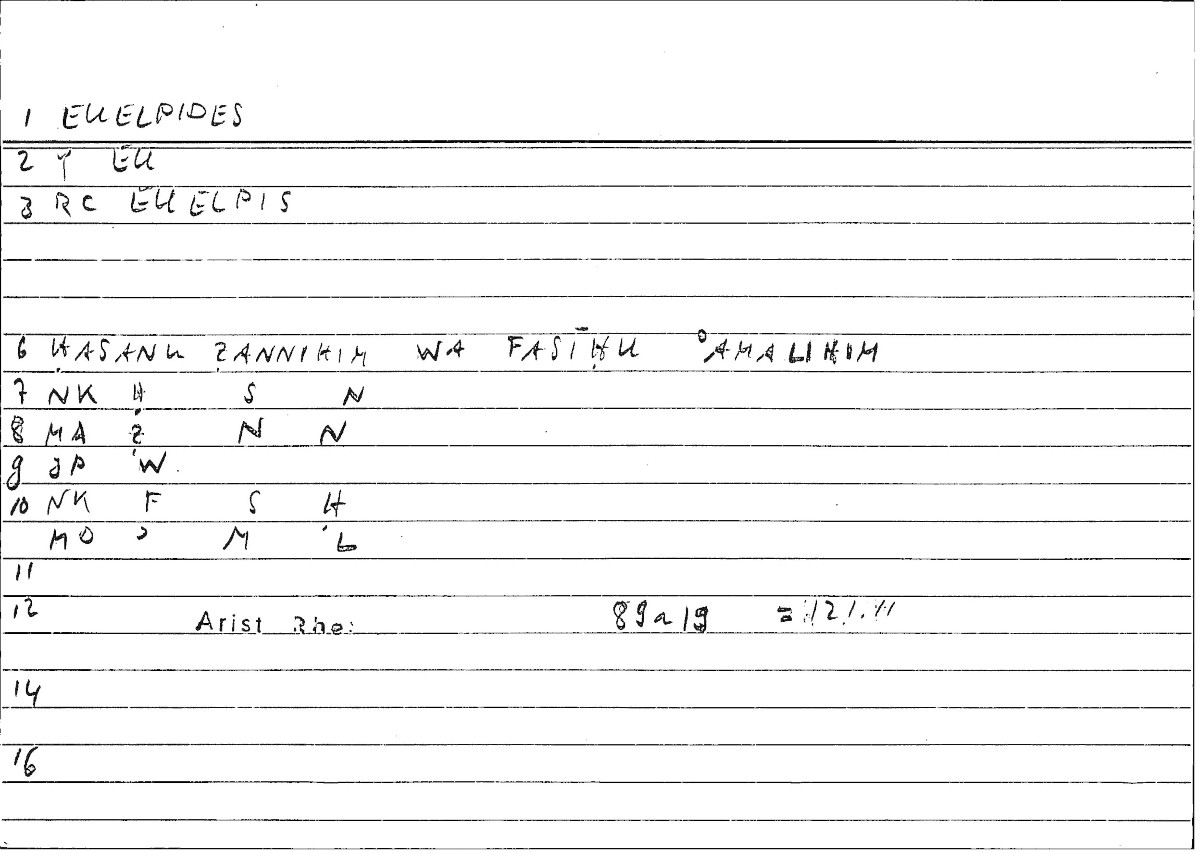 1 EUELPIDES
2 Y EU
3 RC EUELPIS
6 ḤASANU ẒANNIHIM WA FASĪḤU ʾAMALIHIM
7 NK Ḥ S N
8 MA Ẓ N N
9 JP W
10 NK F S Ḥ
MO ʾ M L
11
12 Arist Rhe: 89a19 = 121.11
14
16